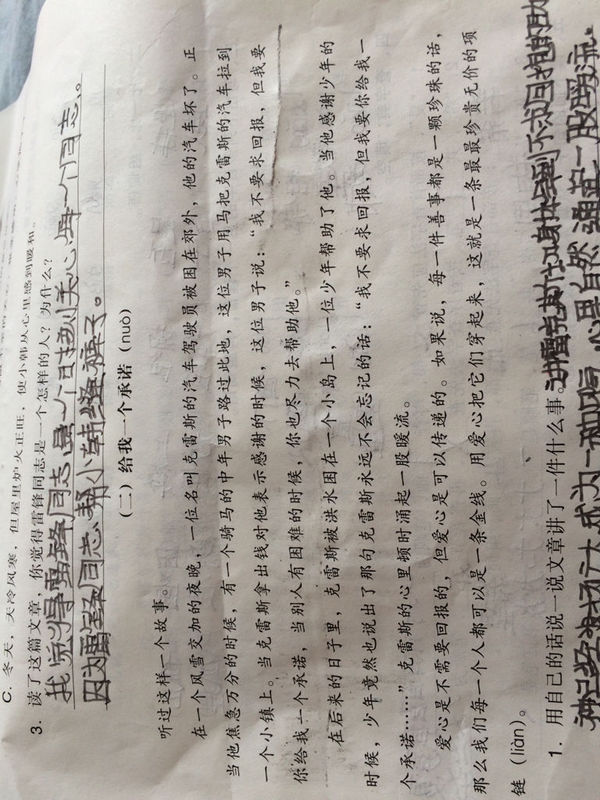 C. 冬天，天冷风寒，但屋里炉火正旺，使小韩从心里感到暖和。
3. 读了这篇文章，你觉得雷锋同志是一个怎样的人？为什么？
我觉得雷锋同志是一个时刻关心每一个同志。
因为雷锋同志帮小韩缝裤子。
（二）给我一个承诺（nuò）
听过这样一个故事。
在一个风雪交加的夜晚，一位名叫克雷斯的汽车驾驶员被困在郊外，他的汽车坏了。正
当他焦急万分的时候，有一个骑马的中年男子路过此地，这位男子用马把克雷斯的汽车拉到
一个小镇上。当克雷斯拿出钱对他表示感谢的时候，这位男子说：“我不要求回报，但我要
你给我一个承诺，当别人有困难的时候，你也尽力去帮助他。”
在后来的日子里，克雷斯被洪水困在一个小岛上，一位少年帮助了他。当他感谢少年的
时候，少年竟然也说出了那句克雷斯永远不会忘记的话：“我不要求回报，但我要你给我一
个承诺……”克雷斯的心里顿时涌起一股暖流。
爱心是不需要回报的，但爱心是可以传递的。如果说，每一件善事都是一颗珍珠的话，
那么我们每一个人都可以是一条金线。用爱心把它们穿起来，这就是一条最最珍贵无价的项
链（liàn）。
1. 用自己的话说一说文章讲了一件什么事。讲雷克斯 不求回报的助
心里自然涌起一股暖流。